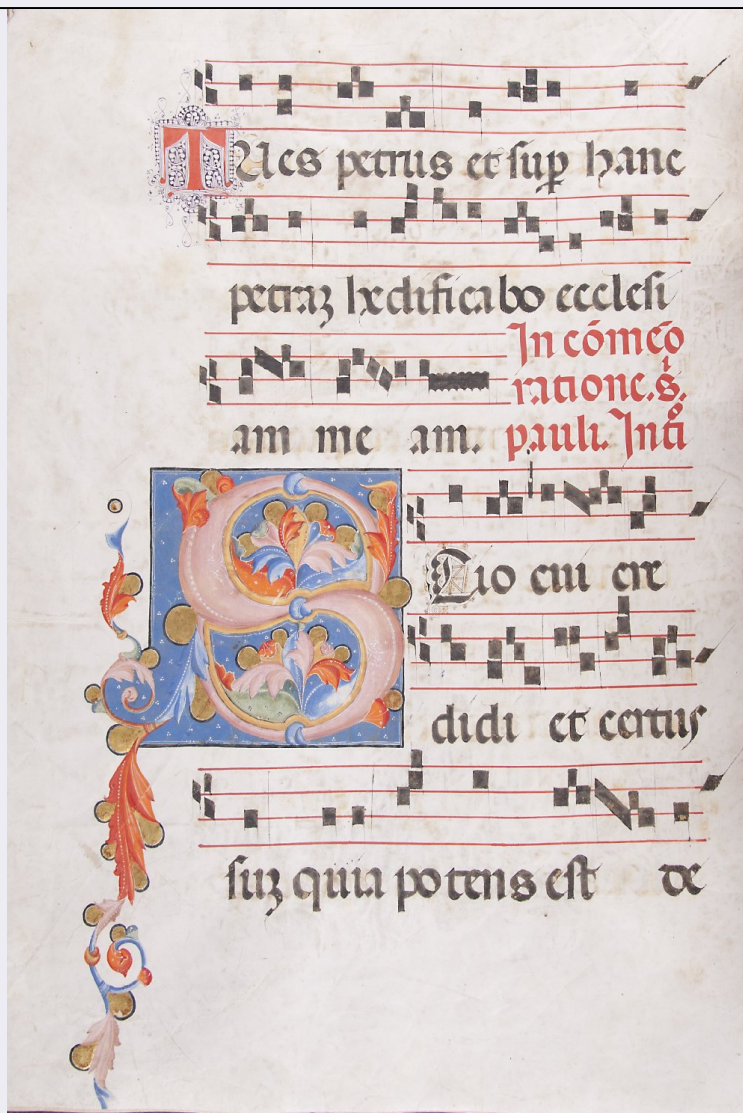 TU es petrus et sup hanc
petraz hedificabo ecclesi
In cómeō
ratione. S.
am me am. pauli. Inti
Scio cui cre
didi et certus
suz quia potens est de